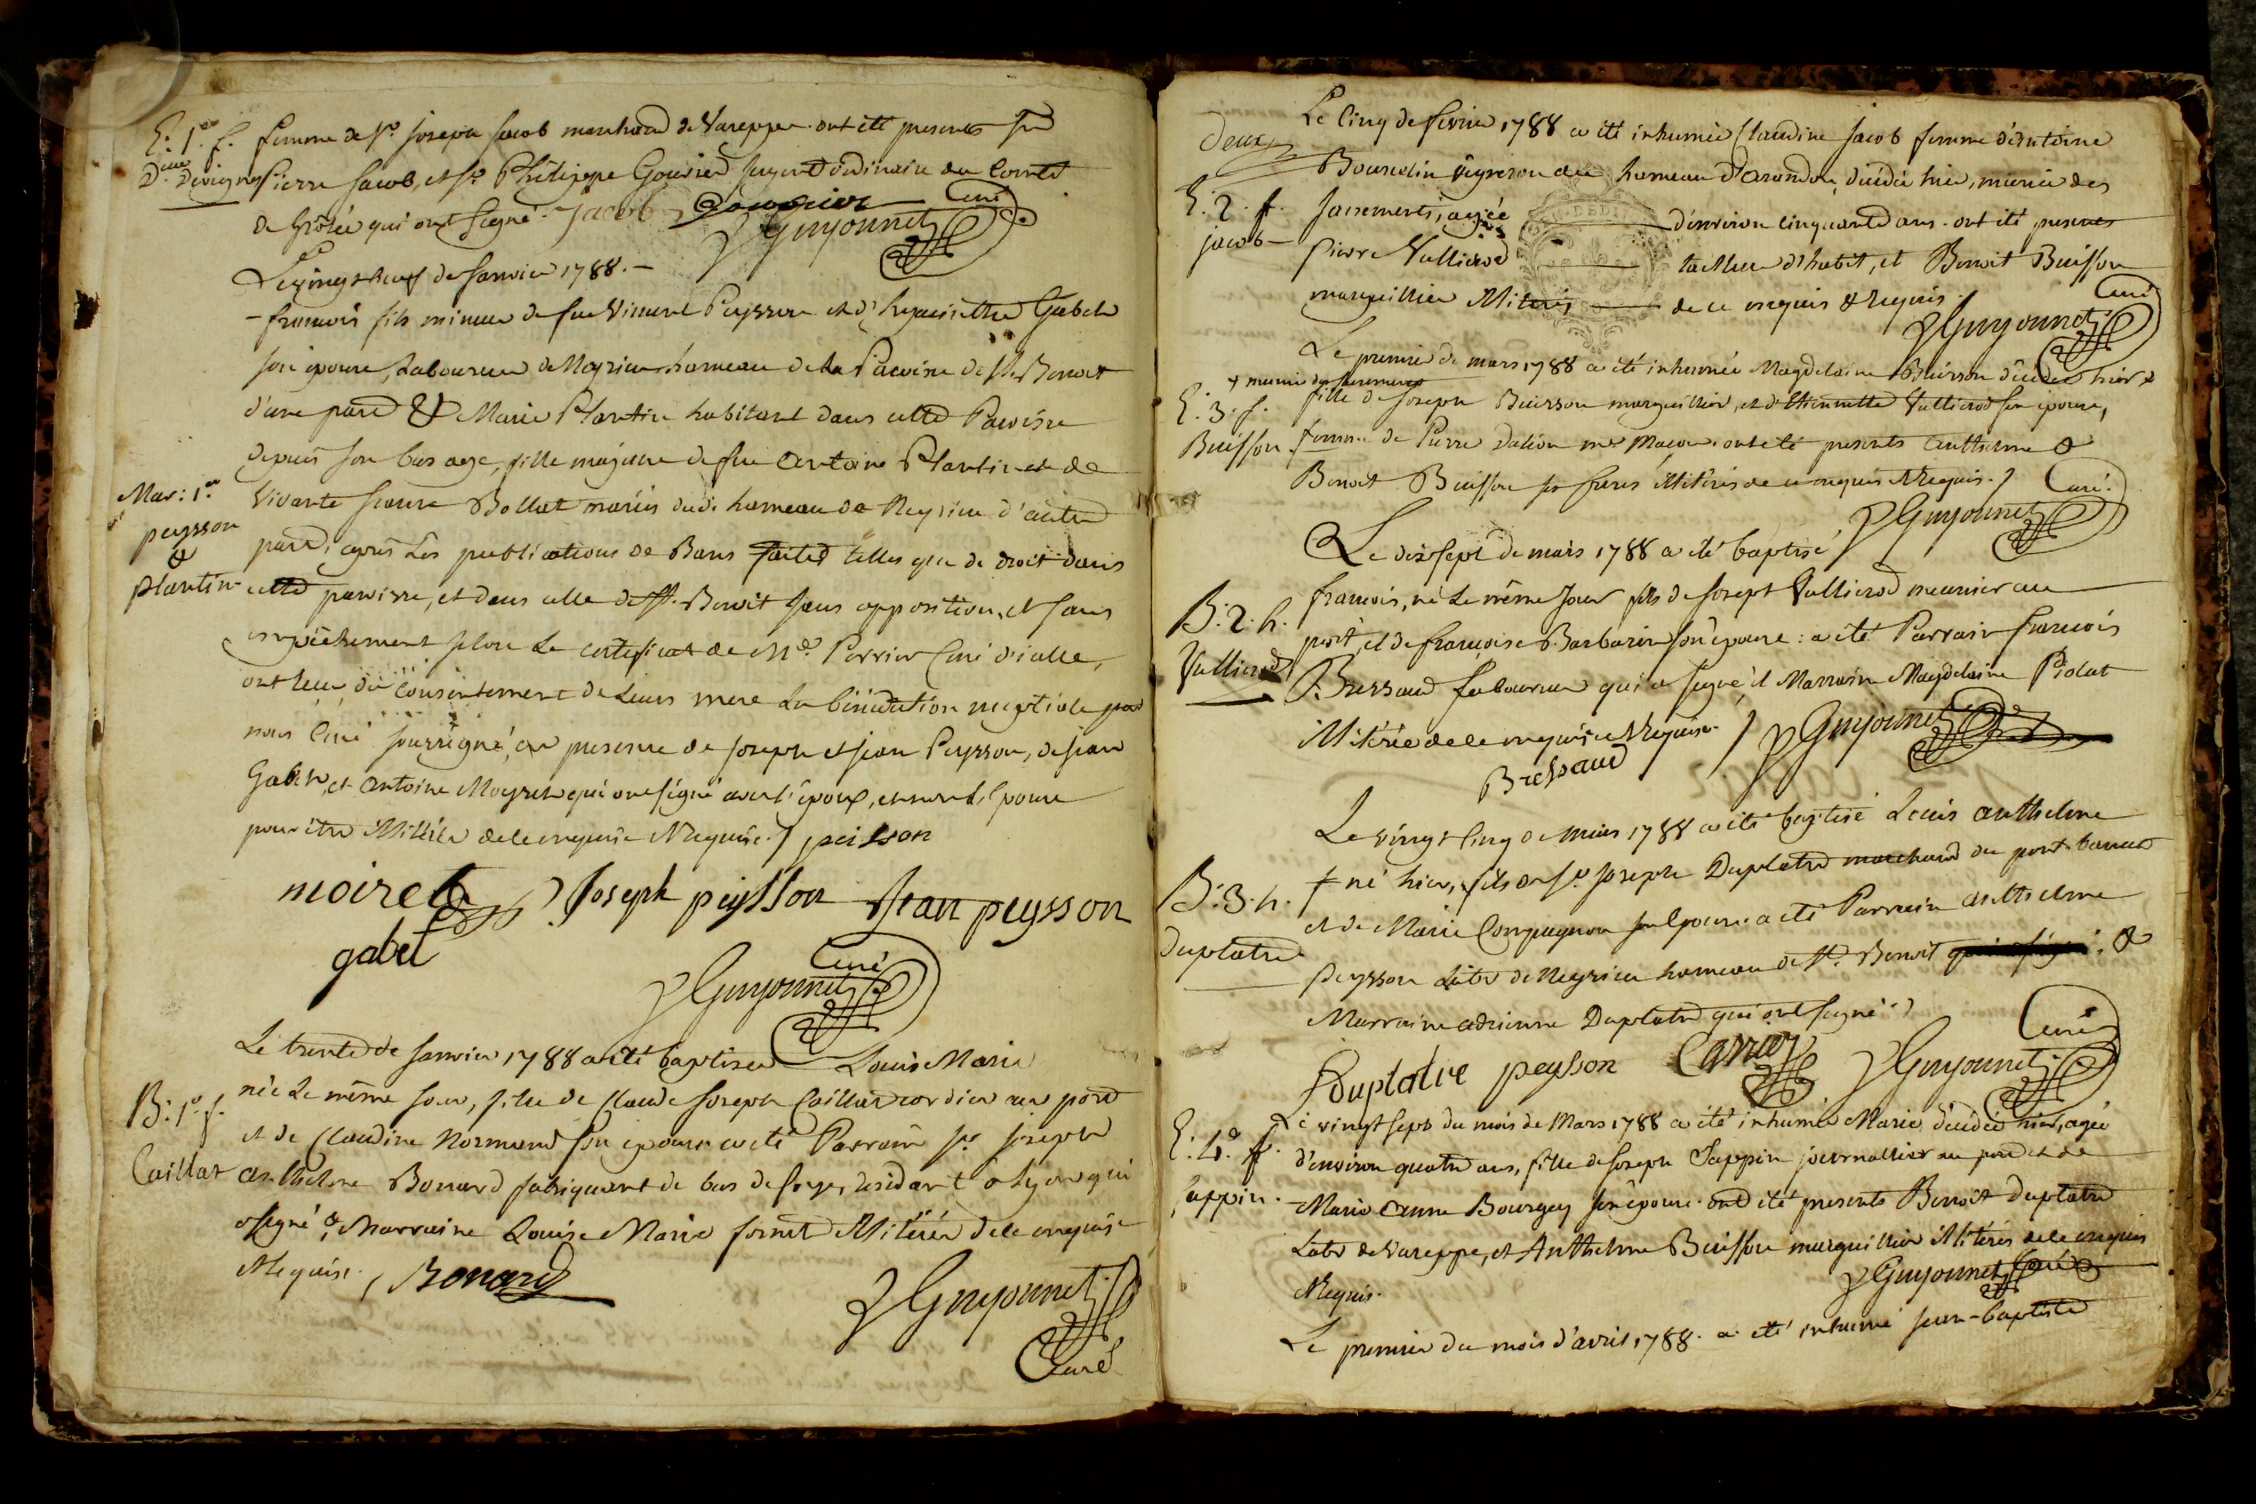 E. 1.re f. femme de sr. joseph jacob marchand de Vareppe. ont été presents sr.
D.lle Pierre jacob, et sr. Philippe Gourier sergent ordinaire du Comté
de Grôlée qui ont signé. Jacob Gourier Guyonnet Curé
Le vingt neuf de janvier 1788. —
— francois fils mineur de feu Vincent Peysson et d'
son epouse, Laboureur de Meyrieu hameau de la Paroisse de St. Benoit
d'une part & Marie Plantin habitant dans cette Paroisse
depuis son bas age, fille majeure de feu Antoine Plantin et de
Mar: 1.er
peysson
&
plantin
vivante Bollat mariés dudi hameau de Meyrieu d'autre
part, après les publications de Bans faites telles que de droit dans
cette paroisse, et dans celle de St. Benoit sans opposition, et sans
empêchement selon le certificat de Mr. Perrier Curé d'icelle,
ont reçu du consentement de leurs mere la bénédiction nuptiale par
nous Curé soussigné, en presence de joseph et jean Peysson, de jean
Gabet, et antoine Moyret qui ont signé avec l'époux, et non l'Epouse
pour être illiterée de ce enquise & requise. / peisson
moiret Joseph peysson Jean peysson
gabet
Guyonnet Curé
Le trente de janvier 1788 a été baptisée Louise Marie
B: 1.e f.
Caillat
née le même jour, fille de Claude joseph Caillat cordier au port
et de Claudine Normand son epouse a été Parrain sr. joseph
Anthelme Bonard fabriquant de bas de soye, residant à Lyon qui
a signé & Marraine Louise Marie fornet illiterée de ce enquise
& requise. / Bonard
Guyonnet
Curé
Deux
Le Cinq de fevrier 1788 a été inhumée Claudine jacob femme d'Antoine
Bourdin vigneron au hameau d'arandon, décédée hier, munie des
E. 2. f.
jacob
sacrements, agée d'environ cinquante ans. ont été presents
Pierre Vullierod tailleur d'habit, et Benoit Buisson
marguillier illiterés de ce enquis & requis.
Guyonnet Curé
Le premier de mars 1788 a été inhumée Magdelaine Buisson décédée hier +
+ munie des sacrements
E. 3. f.
Buisson
fille de joseph Buisson marguillier, et d'Etiennette Vullierod son epouse,
femme de Pierre Dalion me. Maçon. ont été presents Anthelme &
Benoit Buisson ses freres illiterés de ce enquis & requis. /
Guyonnet Curé
Le dix sept de mars 1788 a été baptisé
B: 2. h.
Vullierod
francois, né le même jour fils de joseph Vullierod meunier au
port, et de françoise Barbarin son epouse: a été Parrain francois
Bressaud Laboureur qui a signé, et Marraine Magdelaine Piolat
illiterée de ce enquise & requise. / Guyonnet
Bressaud
Le vingt cinq de mars 1788 a été baptisé Louis anthelme
B: 3. h.
Duplatre
né hier, fils de sr. joseph Duplatre marchand du port
et de Marie Compagnon son Epouse. a été Parrain Anthelme
Peysson Labr. de Meyrieu hameau de St. Benoit &
Marraine adrienne Duplatre qui ont signé.
Duplatre peysson Carrier Guyonnet Curé
Le vingt sept du mois de Mars 1788 a été inhumée Marie décédée hier, agée
E. 4.e f.
Sappin
d'environ quatre ans, fille de joseph Sappin journallier au port et de
Marie Anne Bourgey son epouse. ont été presents Benoit Duplatre
Labr. de Vareppe, et Anthelme Buisson marguillier illiterés de ce enquis
& requis. Guyonnet Curé
Le premier du mois d'avril 1788. a été inhumé jean-baptiste